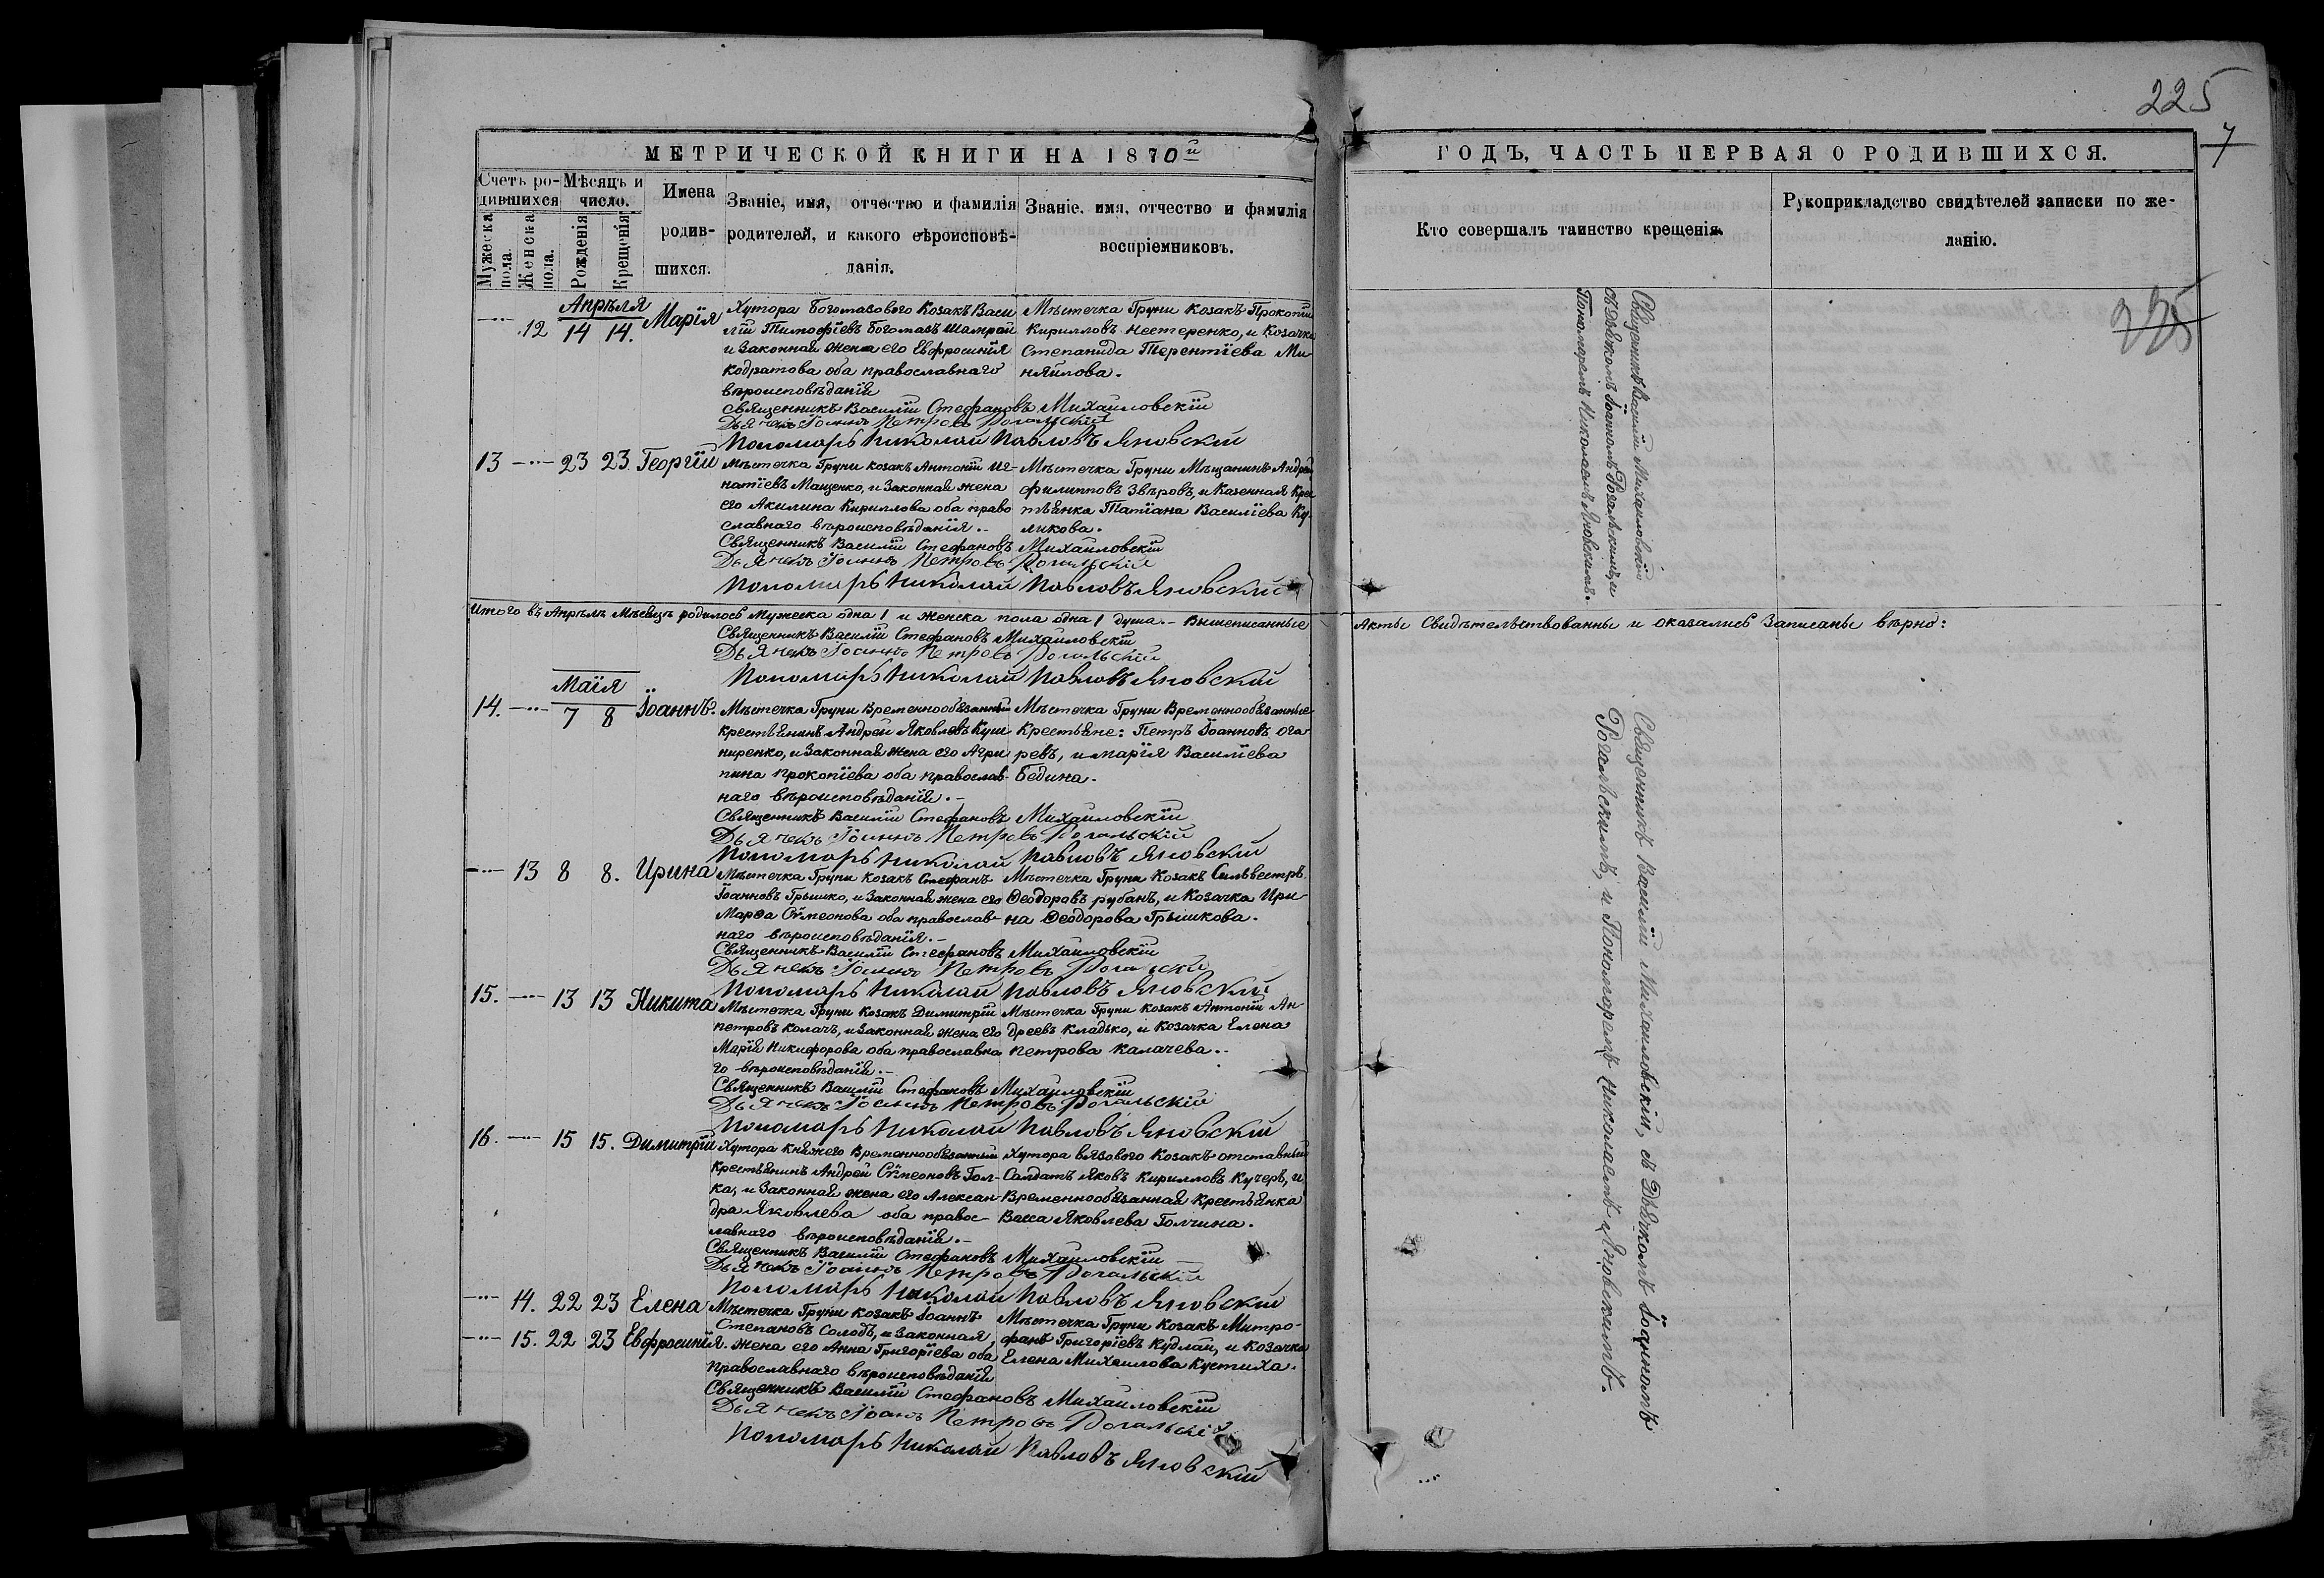 225
7
МЕТРИЧЕСКОЙ КНИГИ НА 1870й
ГОДЪ, ЧАСТЬ ПЕРВАЯ О РОДИВШИХСЯ.
Счетъ ро-
дившихся
Мѣсяцъ и
число.
Имена
родив-
шихся.
Званіе, имя, отчество и фамилія
родителей, и какого вѣроисповѣ-
данія.
Званіе, имя, отчество и фамилія
воспріемниковъ.
Мужеска
пола.
Женска
пола.
Рожденія
Крещенія
Кто совершалъ таинство крещенія.
Рукоприкладство свидѣтелей записки по же-
ланію.
225
Апрѣля
12 14 14. Марія
Хутора Богомазового Козакъ Васи
лій Тимофіевъ Богомазъ Шамрай
и Законная жена его Евфросинія
Кодратова оба православнаго
вѣроисповѣданія
Мѣстечка Груни Козакъ Прокопій
Кирилловъ Нестеренко, и Козачка
Степанида Терентіева Ми
няйлова.
Священникъ Василій Стефановъ Михайловскій
Дьячекъ Іоаннъ Петровъ Рогальскій
Пономарь Николай Павловъ Яновскій
13 23 23 Георгій
Мѣстечка Груни козакъ Антоній Иг-
натіевъ Мащенко, и Законная жена
его Акилина Кириллова оба право
славнаго вѣроисповѣданія.-
Мѣстечка Груни Мѣщанинъ Андрей
Филипповъ Звѣровъ, и Казенная Крес
тьянка Татіана Василіева Ку-
ликова.
Священникъ Василій Стефановъ Михайловскій
Дьячекъ Іоаннъ Петровъ Рогальскій
Пономарь Николай Павловъ Яновскій
Священникъ Василій Михайловскій
съ Дьячкомъ Іоанномъ Рогальскимъ, и
Пономаремъ Николаемъ Яновскимъ.
Итого въ Апрѣлѣ Мѣсяцѣ родилось Мужеска одна 1 и женска пола одна 1 душа.- Вышеписанные
Акты Свидѣтельствованны и оказались Записаны вѣрно:
Священникъ Василій Стефановъ Михайловскій
Дьячекъ Іоаннъ Петровъ Рогальскій
Пономарь Николай Павловъ Яновскій
Маія
14. 7 8 Іоаннъ.
Мѣстечка Груни Временнообязанный
крестьянинъ Андрей Яковлевъ Куш
ниренко, и Законная жена его Агри
пина Прокопіева оба православ-
наго вѣроисповѣданія.-
Мѣстечка Груни Временнообязанные
Крестьяне: Петръ Іоанновъ Ога
ревъ, и Марія Василіева
Бедина.
Священникъ Василій Стефановъ Михайловскій
Дьячекъ Іоаннъ Петровъ Рогальскій
Пономарь Николай Павловъ Яновскій
13 8 8. Ирина
Мѣстечка Груни Козакъ Стефанъ
Іоанновъ Грышко, и Законная жена его
Марѳа Сѵмеонова оба православ-
наго вѣроисповѣданія.-
Мѣстечка Груни Козакъ Сильвестръ
Ѳеодоровъ Рубанъ, и Козачка Ири
на Ѳеодорова Грышкова.
Священникъ Василій Стефановъ Михайловскій
Дьячекъ Іоаннъ Петровъ Рогальскій
Пономарь Николай Павловъ Яновскій
15. 13 13 Никита
Мѣстечка Груни Козакъ Димитрій
Петровъ Колачъ, и Законная жена его
Марія Никифорова оба православна
го вѣроисповѣданія.-
Мѣстечка Груни козакъ Антоній Ан-
дреевъ Кладько, и козачка Елена
Петрова Калачева.-
Священникъ Василій Стефановъ Михайловскій
Дьячекъ Іоаннъ Петровъ Рогальскій
Пономарь Николай Павловъ Яновскій
16. 15 15. Димитрій
Хутора Княжего Временнообязанный
Крестьянинъ Андрей Сѵмеоновъ Гол-
ка, и Законная жена его Алексан
дра Яковлева оба правос-
лавнаго вѣроисповѣданія.-
Хутора Вязового Козакъ отставный
Солдатъ Яковъ Кирилловъ Кучеръ, и
Временнообязанная Крестьянка
Васса Яковлева Голчина.
Священникъ Василій Стефановъ Михайловскій
Дьячекъ Іоаннъ Петровъ Рогальскій
Пономарь Николай Павловъ Яновскій
14. 22 23 Елена
15. 22 23 Евфросинія.
Мѣстечка Груни козакъ Іоаннъ
Степановъ Солодъ, и Законная
жена его Анна Григоріева оба
Православнаго вѣроисповѣданія
Мѣстечка Груни Козакъ Митро-
фанъ Григоріевъ Кудлай, и Козачка
Елена Михаилова Кустиха.
Священникъ Василій Стефановъ Михайловскій
Дьячекъ Іоаннъ Петровъ Рогальскій
Пономарь Николай Павловъ Яновскій
Священникъ Василій Михайловскій, съ Дьячкомъ Іоанномъ
Рогальскимъ, и Пономаремъ Николаемъ Яновскимъ.